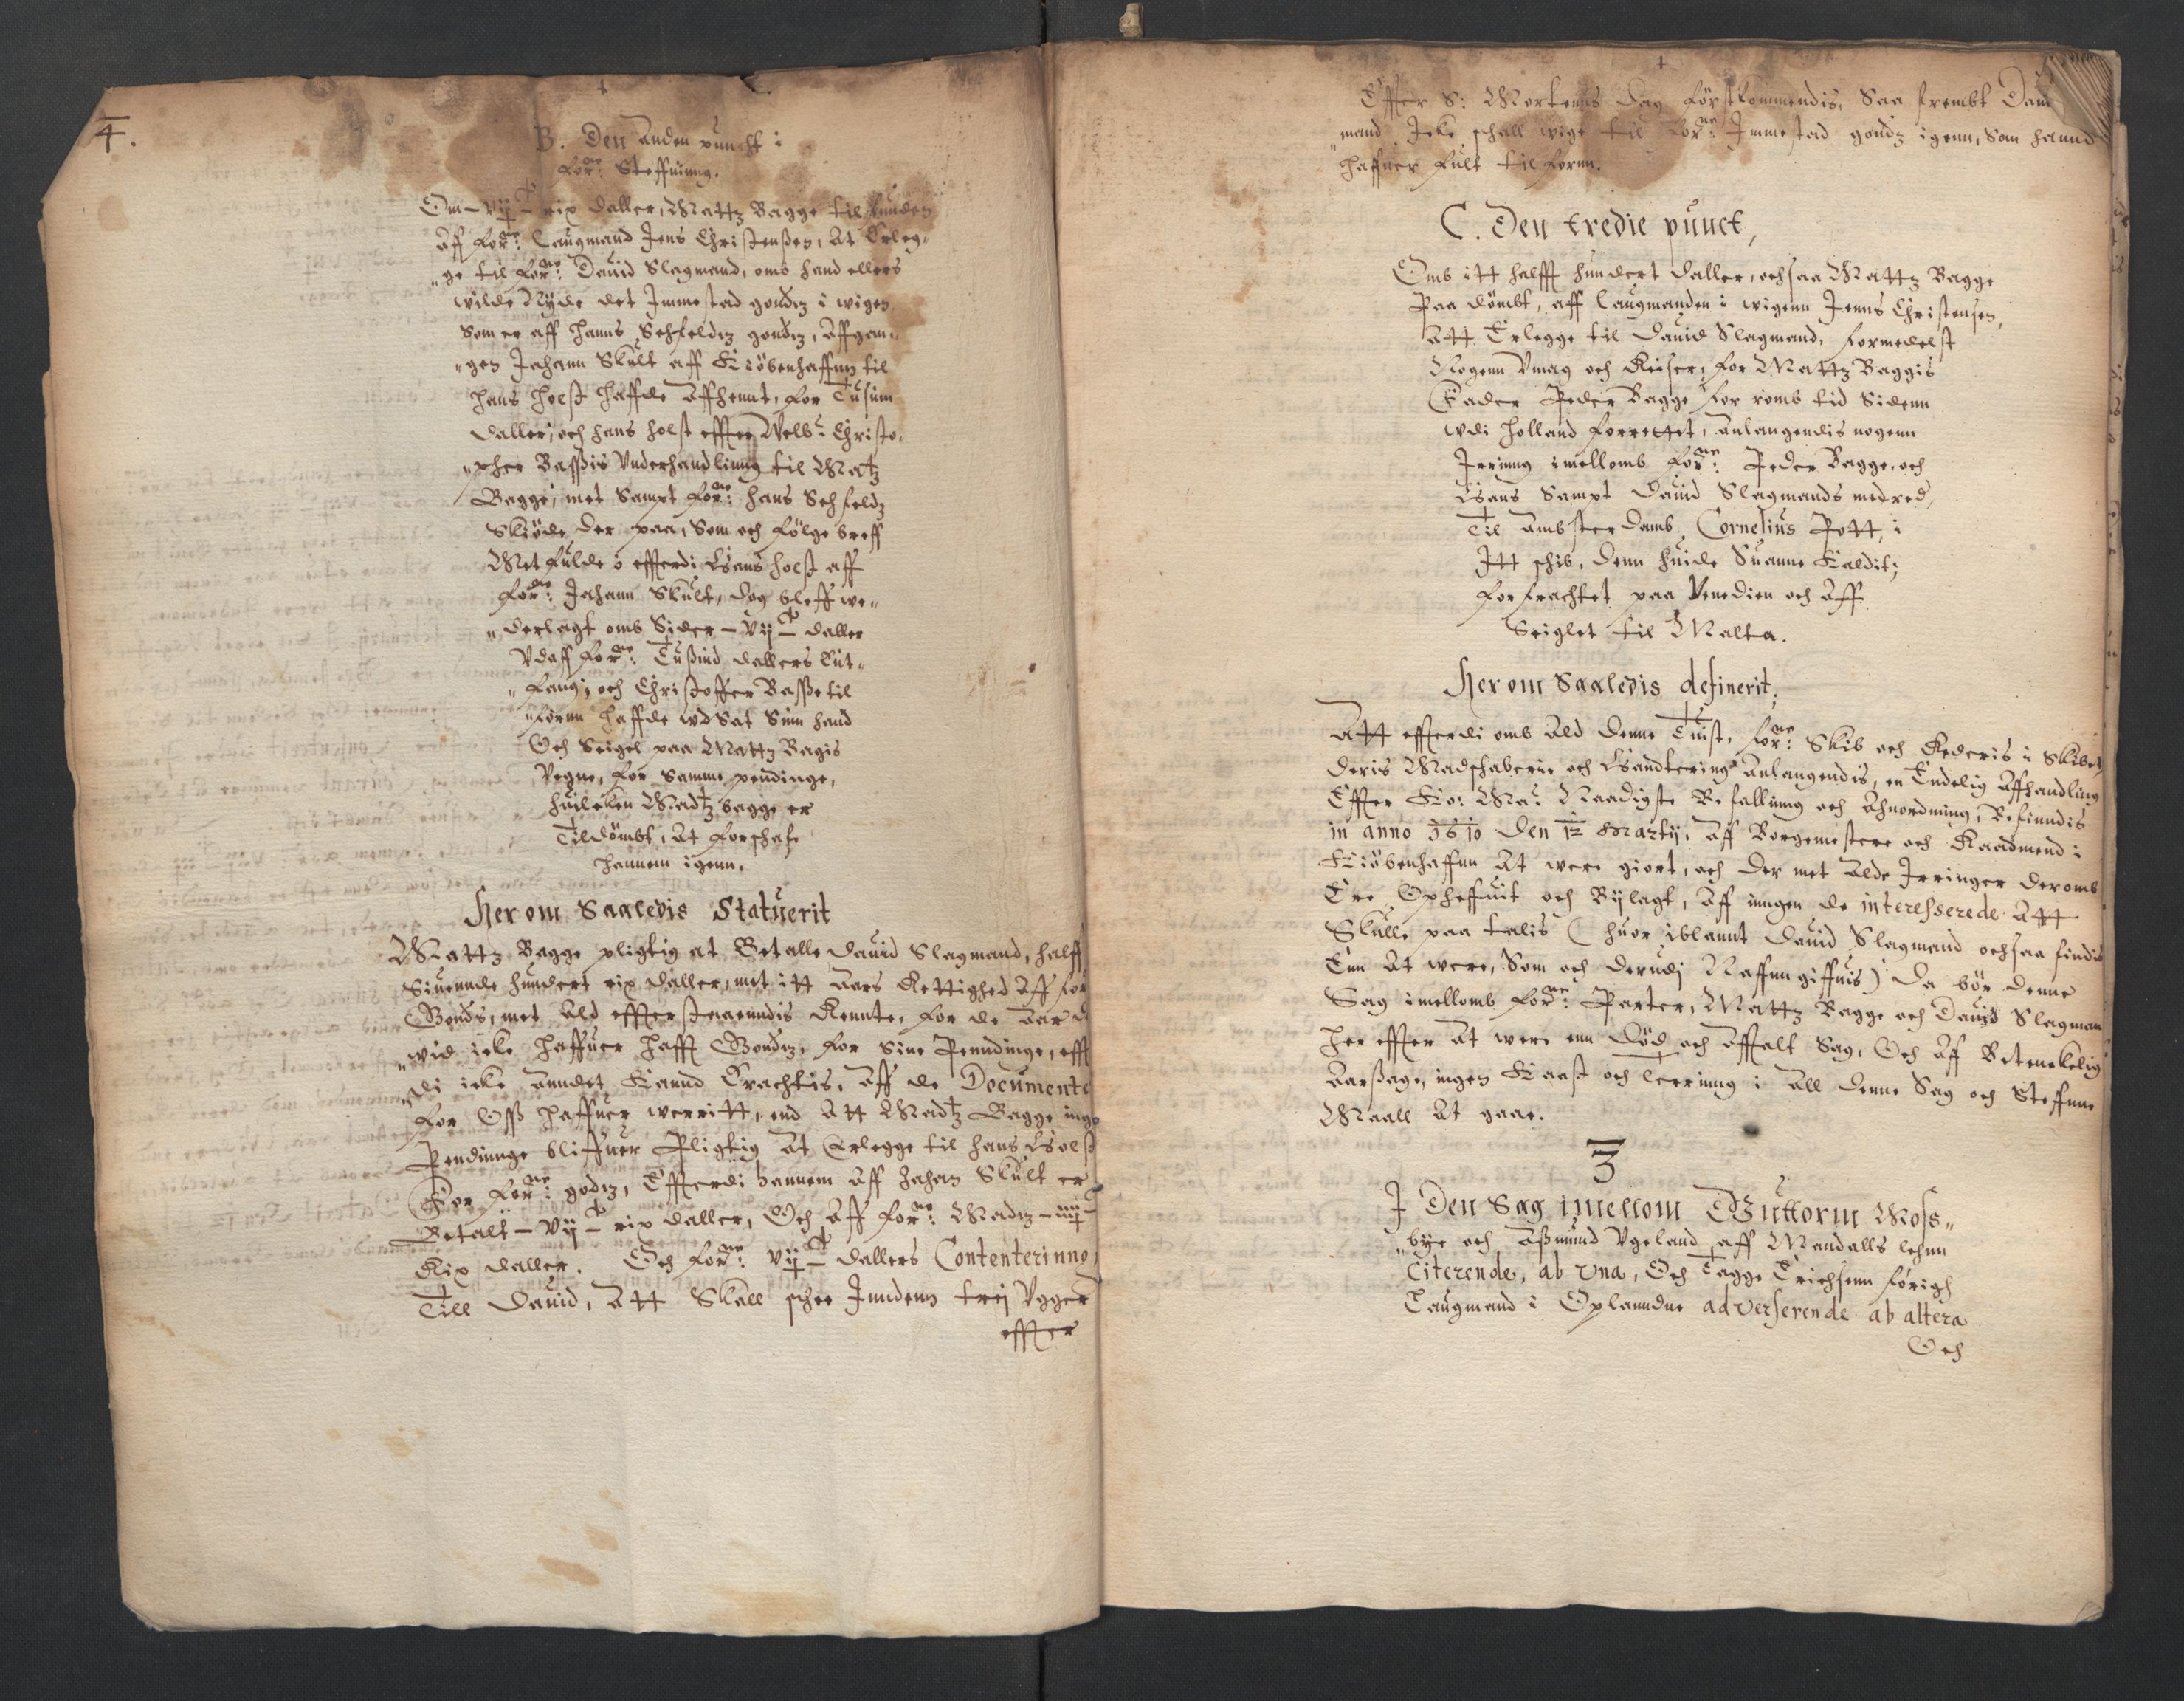 4.
B. Den anden punckt i
for.ne Steffning.
Om – vijC – rix daller, Mattz Bagge til funden
Aff for.ne Laugmand Jens Christenßen, At Erleg„
„ge til for.ne Dauid Slagmand, omb hand ellers
wilde Nyde det Jmmestad goudtz i wigen
Som er aff Hanns Sehfeldtz goudtz, Affgan„
„gen Jahann Skult aff Kiöbenhaffnn til
Hans Holst Haffde Affhent, for Tusinn
daller, och Hans Holst effter Welb: Christo„
„pher Baßis Vnderhandlinng til Matz
Bagge, met Sampt for.ne Hans Sehfeldz
Skiöde der paa, Som och Fölge breff
Met fulde, efftterdi Hans Holst aff
for.ne Jahann Skult, dog bleff we„
„derlagt omb Sider – vijC – daller
Vdaff for.ne Tußind dallers
fang, och Christoffer Baße til
forn Haffde wd Sat Sinn Hand
Och Seigel paa Mattz Bagis
Vegne, for Samme pendinge,
Huilcken Madtz Bagge er
Tildömbt, At forschafe
Hannem igenn.
Her om Saaledis Statuerit
Mattz Bagge pligtig at Betalle Dauid Slagmand, Halff
Siuennde Hundert rix daller, met itt Aars Rettighed Aff for
Gouds, met Ald effterstaaenndis Rennte, for de Aar
„wid icke Haffuer Hafft Goudtz, for Sine Penndinge, efft
„di icke Anndet Kannd Erachtis, Aff de Documente
for Oß Haffuer werritt, end Att Madtz Bagge inge
Pendinnge bliffuer Pligtig At Erlegge til Hans Holst
For for.ne godtz, Effterdi Hannem Aff Jahan Skult er
Betalt – vijC – rix daller, Och Aff for.ne Madtz – iiijC –
Rix daller. Och for.ne vijC – dallers Contenterinno
Till Dauid, Att Skall schee Jnndenn trej Vgger
effter
Effter S: Mortenns dag förstkommendis, Saa frembt Dauid
„mand Jcke schall wige til for.ne Jmmestad goudz igenn, Som Hannd
Haffuer fult til fornn.
C. Den tredie punct,
Omb itt Halfft Hundert daller, ochsaa Mattz Bagge
Paa dömbt, aff Laugmanden i wigenn Jenns Christensen,
Att Erlegge til Dauid Slagmand, formedelst
Nogenn Vmag och Reiser, for Mattz Baggis
Fader Peder Bagge for romb tid Sidenn
wdi Holland forrettet, Anlangendis nogenn
Jrring imellomb for.ne Peder Bagge, och
Hans Sampt Dauid Slagmands medred,
Til Ambsterdamb, Cornelius Pott, i
Jtt schib, denn Huide Suanne Kaldit;
forfrachtet paa Venedien och Aff
Seiglet til Malta.
Her om Saaledis definerit;
Att effterdi omb Ald denne Tuist, for.ne Skib och Rederis i Skibet
deris Madschaberie och Handtering Anlangendis, en Endelig Affhandling
Effter Ko: Ma: Naadigste Befallinng och Ahnordning, Befinndis
in anno 1610 den 12 Martij, Aff Borgemestere och Raadmend i
Kiöbenhaffnn At were giort, och der met Alde Jrringer deromb
Ere Opheffuit och Bijlagt, Aff inngen de interesserede Att
Skulle paa talis (Huor iblannt Dauid Slagmand ochsaa findis
Enn At were, Som och derudj Naffnn giffuis) Da bör denne
Sag imellomb for.ne Parter, Mattz Bagge och Dauid Slagman
Her effter At were enn död och Affalt Sag, Och Aff Betenckelig
Aarsager, ingen Kaast och teering i All denne Sag och Steffnne
Maall At gaae.
3
J Den Sag imellom Guttorm Moss„
„bye och Aßmund Vgeland aff Mandalls lehnn
Citerende, ab una, Och Tagge Erichsenn förigh
Laugmand i Oplanndne adverserende ab altera
Och